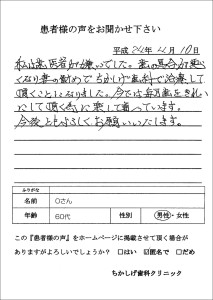 患者様の声をお聞かせ下さい
平成24年4月10日
私は歯医者が嫌いでした。歯の具合が悪く
なり妻の勧めでちかしげ歯科で治療して
頂くことになりました。今では毎月歯をきれ
いにして頂く為に楽しく通っています。
今後ともよろしくお願いいたします。
ふりがな
名前 Oさん
年齢 60代 性別 男性・女性
この『患者様の声』をホームページに掲載させて頂く場合が
ありますがよろしいでしょうか? □はい ☑匿名で □だめ
ちかしげ歯科クリニック